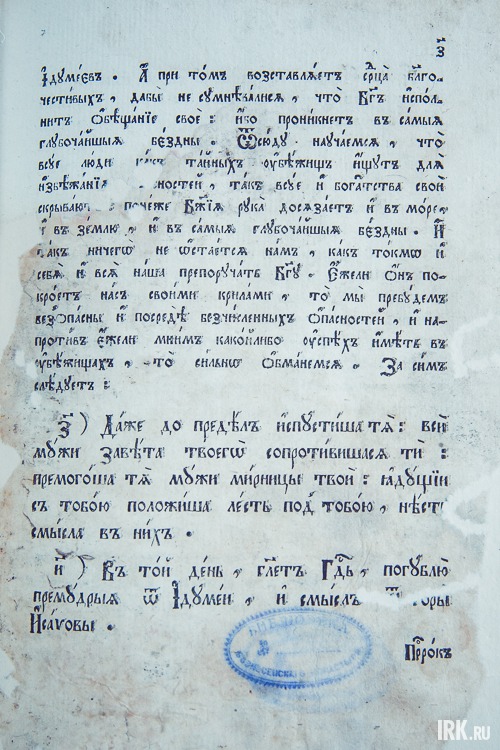 з҃
І҆дꙋмеєвъ . А҆ при то́мъ возставлѧ́етъ сердца̀ бл҃го-
чести́выхъ , дабы̀ не сꙋмнѣва́лисѧ , что̀ Бг҃ъ и҆спо́л-
нитъ Ѻ҆бѣща́нїе своѐ : и҆́бо прони́кнетъ въ са́мыѧ
глꙋбоча́йшыѧ бє́здны . Ѿсю́дꙋ наꙋча́емсѧ , что̀
всꙋ́е лю́ди та́йныхъ ᲂу҆бѣ́жищъ и҆́щꙋтъ длѧ̀
и҆збѣжа́нїѧ ностей , та́къ всꙋ́е и҆ бога́тства своѝ
скрыва́ю : поне́же Бж҃їѧ рꙋка̀ досѧза́етъ и҆ въ мо́ре ,
и҆ въ зе́млю , и҆ въ са́мыѧ глꙋбоча́йшыѧ бє́здны . И҆
та́къ ничегѡ̀ не ѡ҆стае́тсѧ на́мъ , ка́къ то́кмѡ и҆
себѧ̀ и҆ всѧ̑ на́ша препорꙋча́ть Бг҃ꙋ . Є҆́жели Ѻ҆́нъ по-
кро́етъ на́съ свои́ми крила́ми , то̀ мы̀ пребꙋ́демъ
безѻпа́сны и҆ посредѣ̀ безчи́сленныхъ ѻ҆па́сностей , и҆ на-
про́тивъ є҆́жели мни́мъ како́йлибо ᲂу҆спѣ́хъ и҆мѣ́ть въ
ᲂу҆бѣ́жищахъ , то̀ си́льнѡ ѻ҆бма́немсѧ . За си́мъ
слѣ́дꙋетъ :
з҃ ) Да́же до предѣ̑лъ и҆спꙋсти́ша тѧ̀ : всѝ
мꙋ́жи завѣ́та твоегѡ̀ сопроти́вишасѧ тѝ :
премого́ша тѧ̀ мꙋ́жи ми́рницы твоѝ : ꙗ҆дꙋ́щїи
съ тобо́ю положи́ша ле́сть под̾ тобо́ю , нѣ́сть
смы́сла въ ни́хъ .
и҃ ) Въ то́й де́нь , гл҃етъ Гд҇ь , погꙋблю̀
премꙋ́дрыѧ ѿ І҆дꙋме́и , и҆ смы́слъ ѿ горы̀
И҆са́ѵовы .
Прⷪ҇ро́къ
IRK.RU